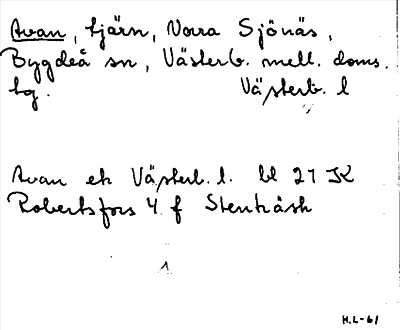 Avan, tjärn, Norra Sjönäs,
Bygdeå sn, Västerb. mell. doms.
tg. Västerb. l
Avan ek Västerb. l. bl 21 JK
Robertsfors 4 f Stenträsk
1
H.L-61